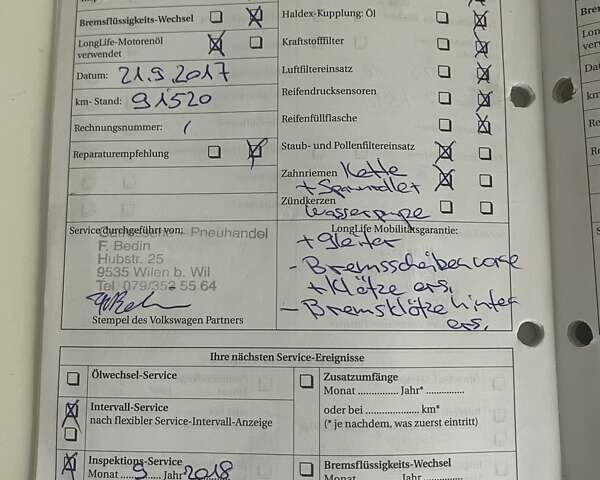 Bremsflüssigkeits-Wechsel
LongLife-Motorenöl
verwendet
Datum: 21.9.2017
km- Stand: 91520
Rechnungsnummer: /
Reparaturempfehlung
Haldex-Kupplung: Öl
Kraftstofffilter
Luftfiltereinsatz
Reifendrucksensoren
Reifenfüllflasche
Staub- und Pollenfiltereinsatz
Zahnriemen Kette
+ Spannroller
Zündkerzen
Wasserpumpe
Service durchgeführt von:
Pneuhandel
F. Bedin
Hubstr. 25
9535 Wilen b. Wil
Tel. 079/352 55 64
Stempel des Volkswagen Partners
LongLife Mobilitätsgarantie:
+ gleiter
- Bremsscheiben vorne
+ Klötze ers.
- Bremsklötze hinten
ers.
Ihre nächsten Service-Ereignisse
Ölwechsel-Service
Intervall-Service
nach flexibler Service-Intervall-Anzeige
Inspektions-Service
Monat 9 Jahr 2018
Zusatzumfänge
Monat ............... Jahr* ...............
oder bei ..................... km*
(* je nachdem, was zuerst eintritt)
Bremsflüssigkeits-Wechsel
Monat ............... Jahr ...............